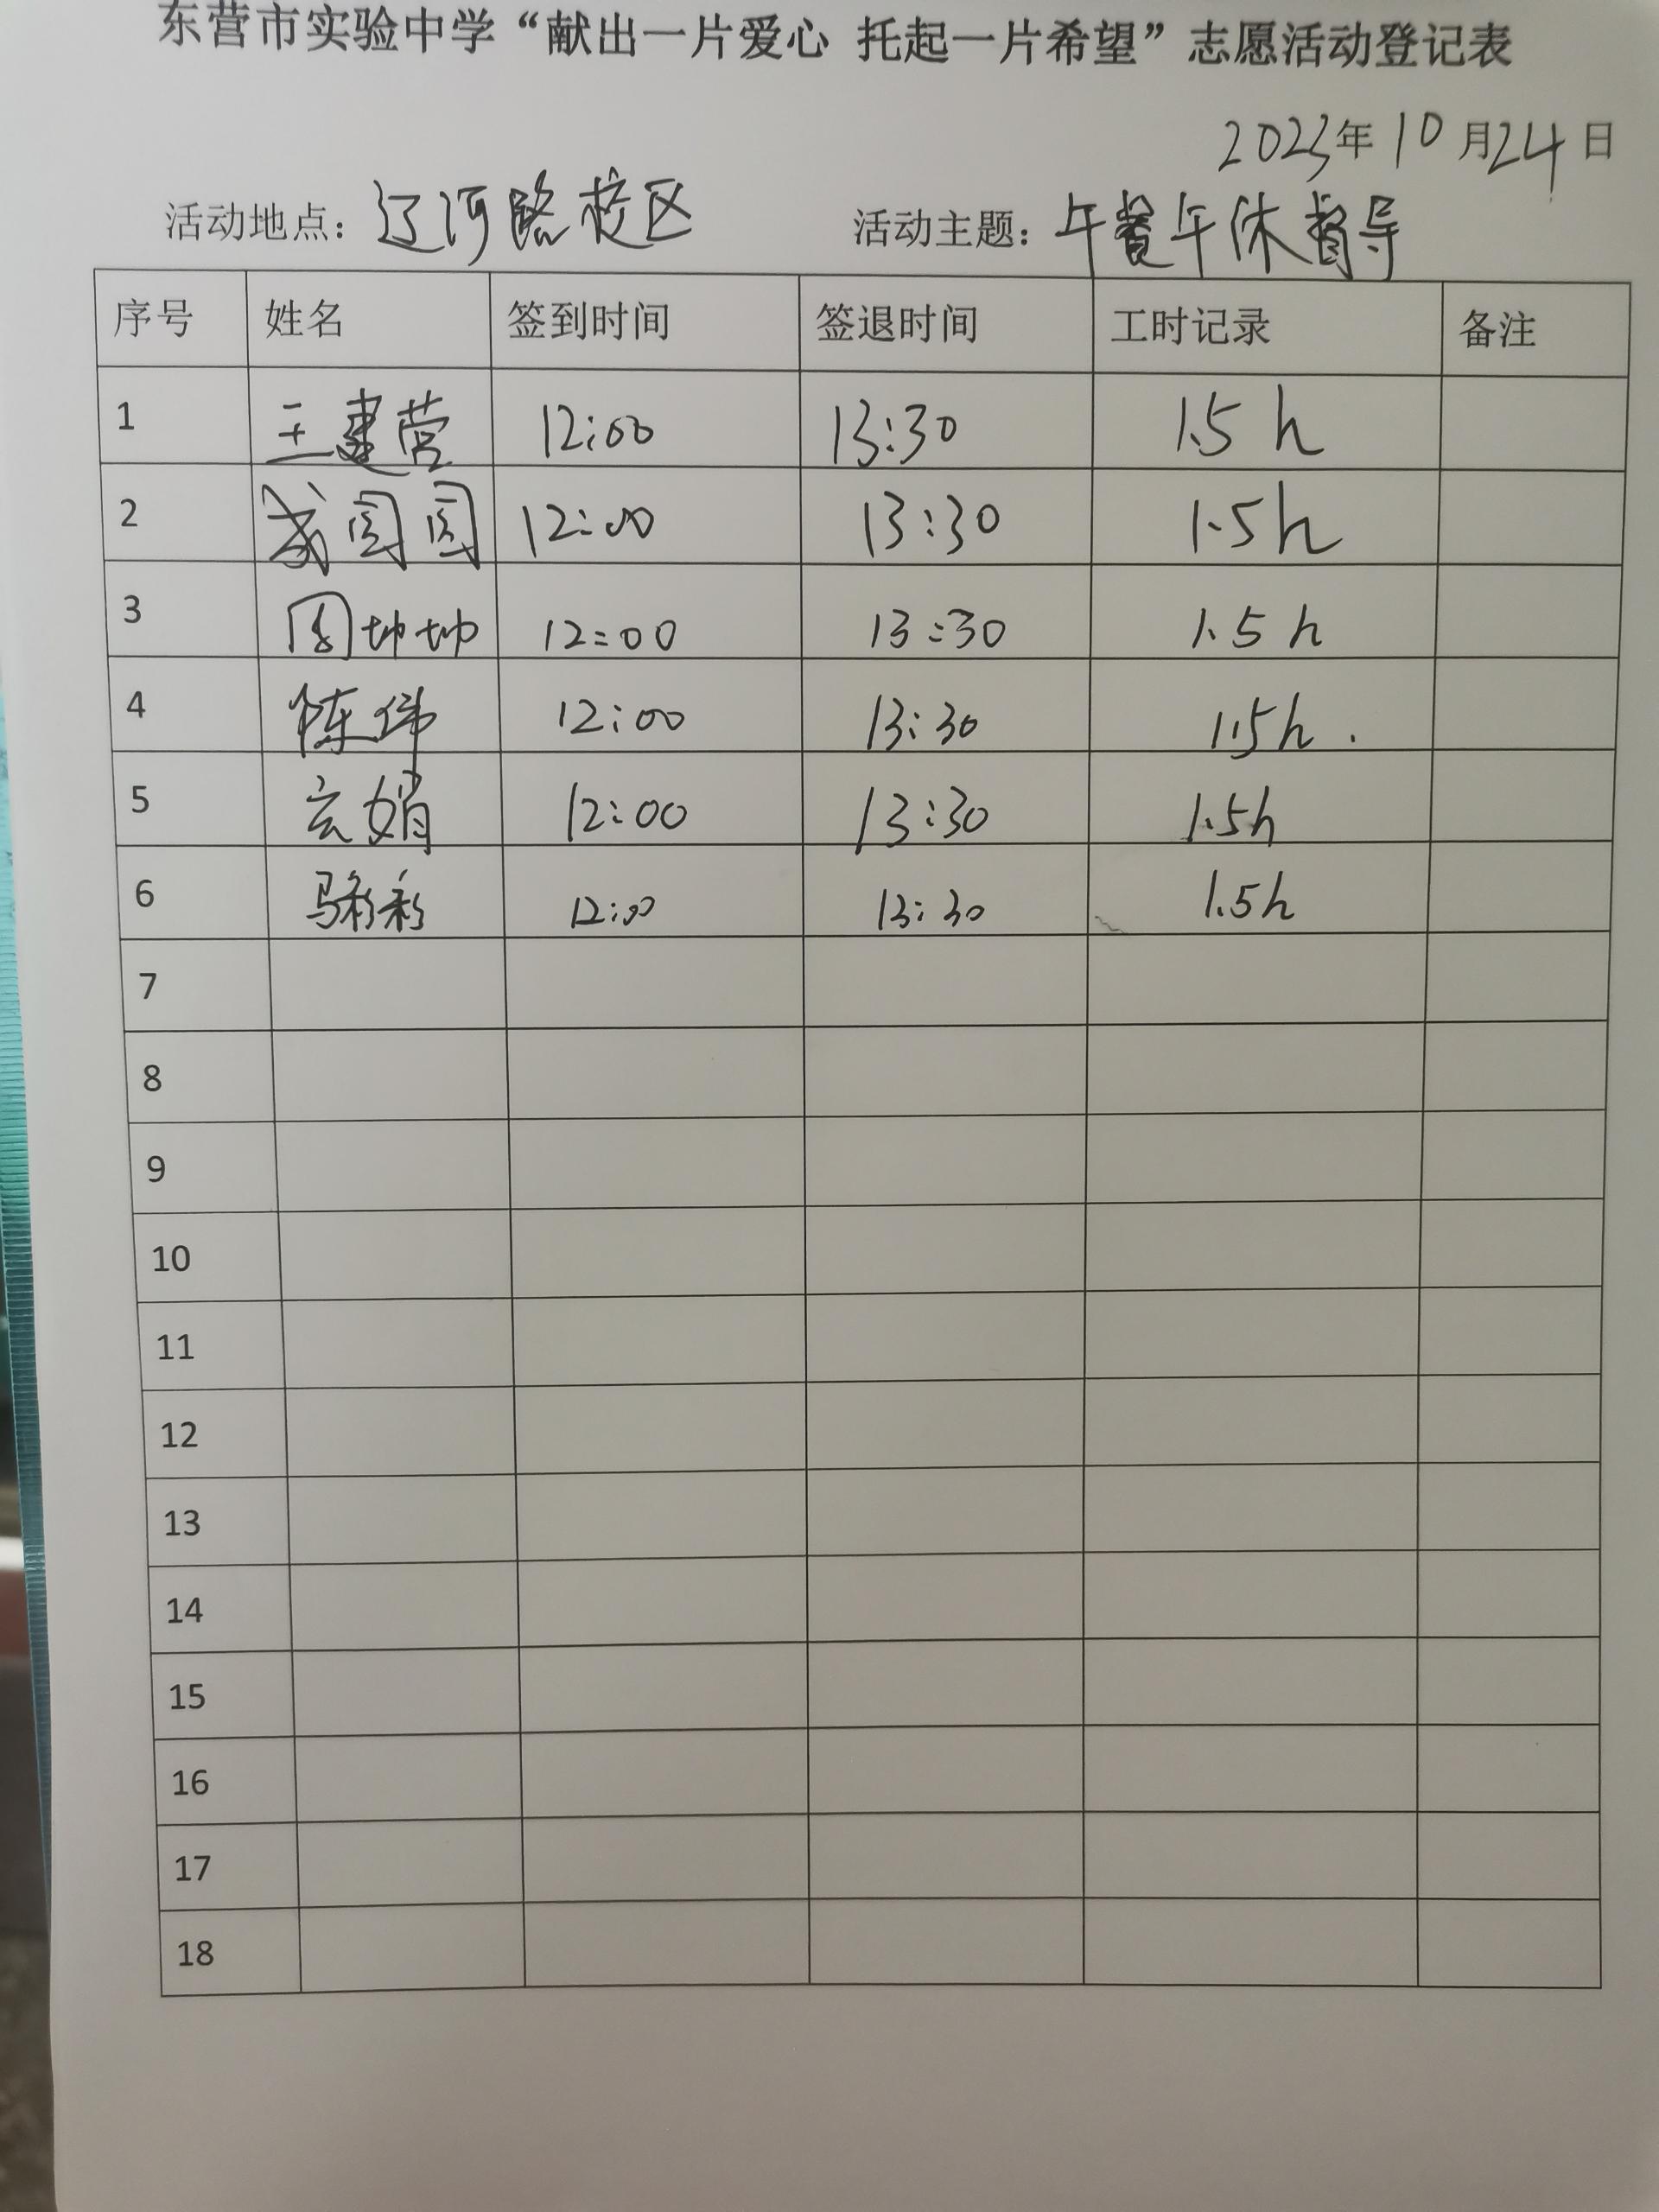 东营市实验中学“献出一片爱心 托起一片希望”志愿活动登记表
2023年10月24日
活动地点：辽河路校区 活动主题：午餐午休督导
序号 姓名 签到时间 签退时间 工时记录 备注
1 王建营 12:00 13:30 1.5h
2 成圆圆 12:00 13:30 1.5h
3 周坤坤 12:00 13:30 1.5h
4 陈伟 12:00 13:30 1.5h.
5 玄娟 12:00 13:30 1.5h
6 马彩彩 12:00 13:30 1.5h
7
8
9
10
11
12
13
14
15
16
17
18